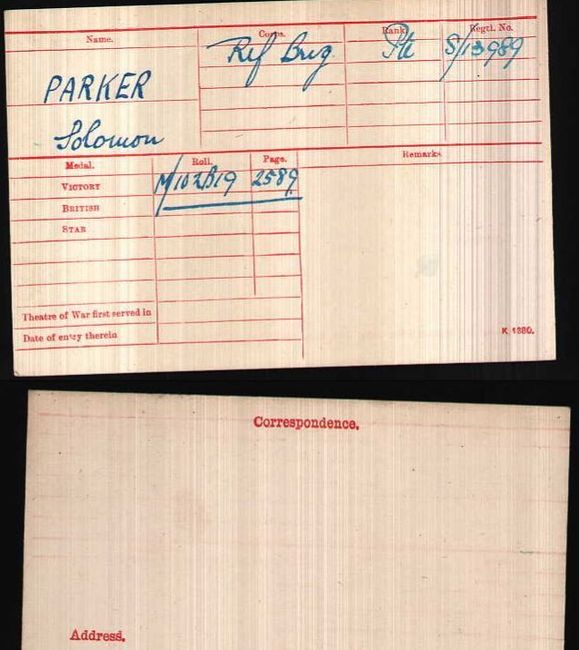 Name. Corps. Rank. Regtl. No.
PARKER Rif Brig Pte S/13989
Solomon
Medal. Roll. Page. Remarks
VICTORY 2589
BRITISH
STAR
Theatre of War first served in
Date of entry therein
K 1380.
Correspondence.
Address.